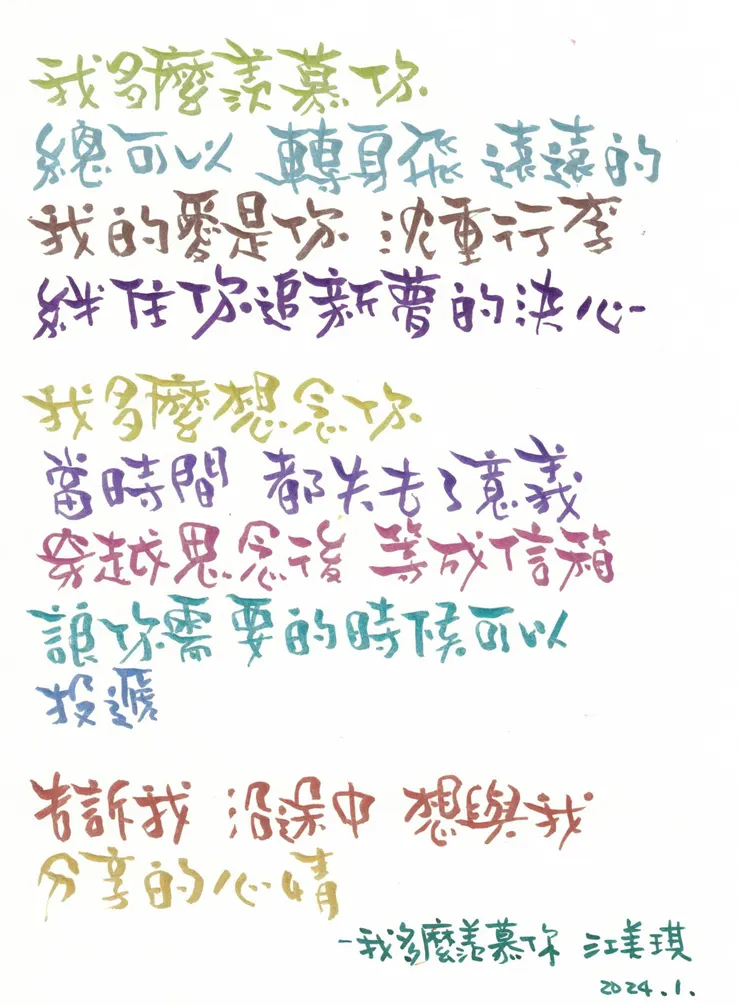 我多麼羨慕你
總可以 轉身飛 遠遠的
我的愛是你 沈重行李
絆住你追新夢的決心
我多麼想念你
當時間 都失去了意義
穿越思念後 等成信箱
讓你需要的時候可以
投遞
告訴我 沿途中 想與我
分享的心情
-我多麼羨慕你 江美琪
2024.1.